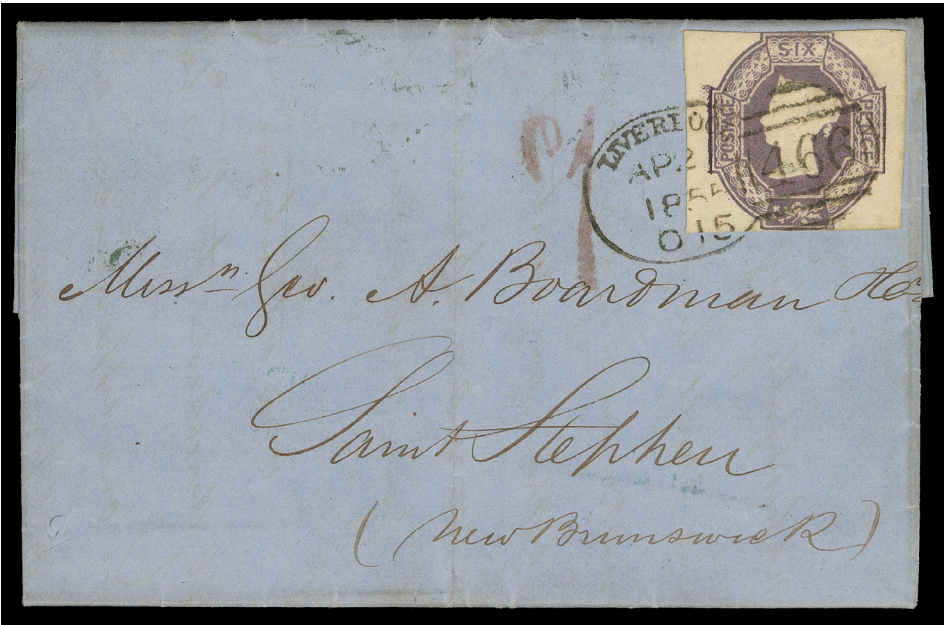 SIX
POSTAGE
PENCE
LIVERPOO
AP 2
1855
O 15
466
Messrs Geo. A. Boardman
Saint Stephen
(New Brunswick)